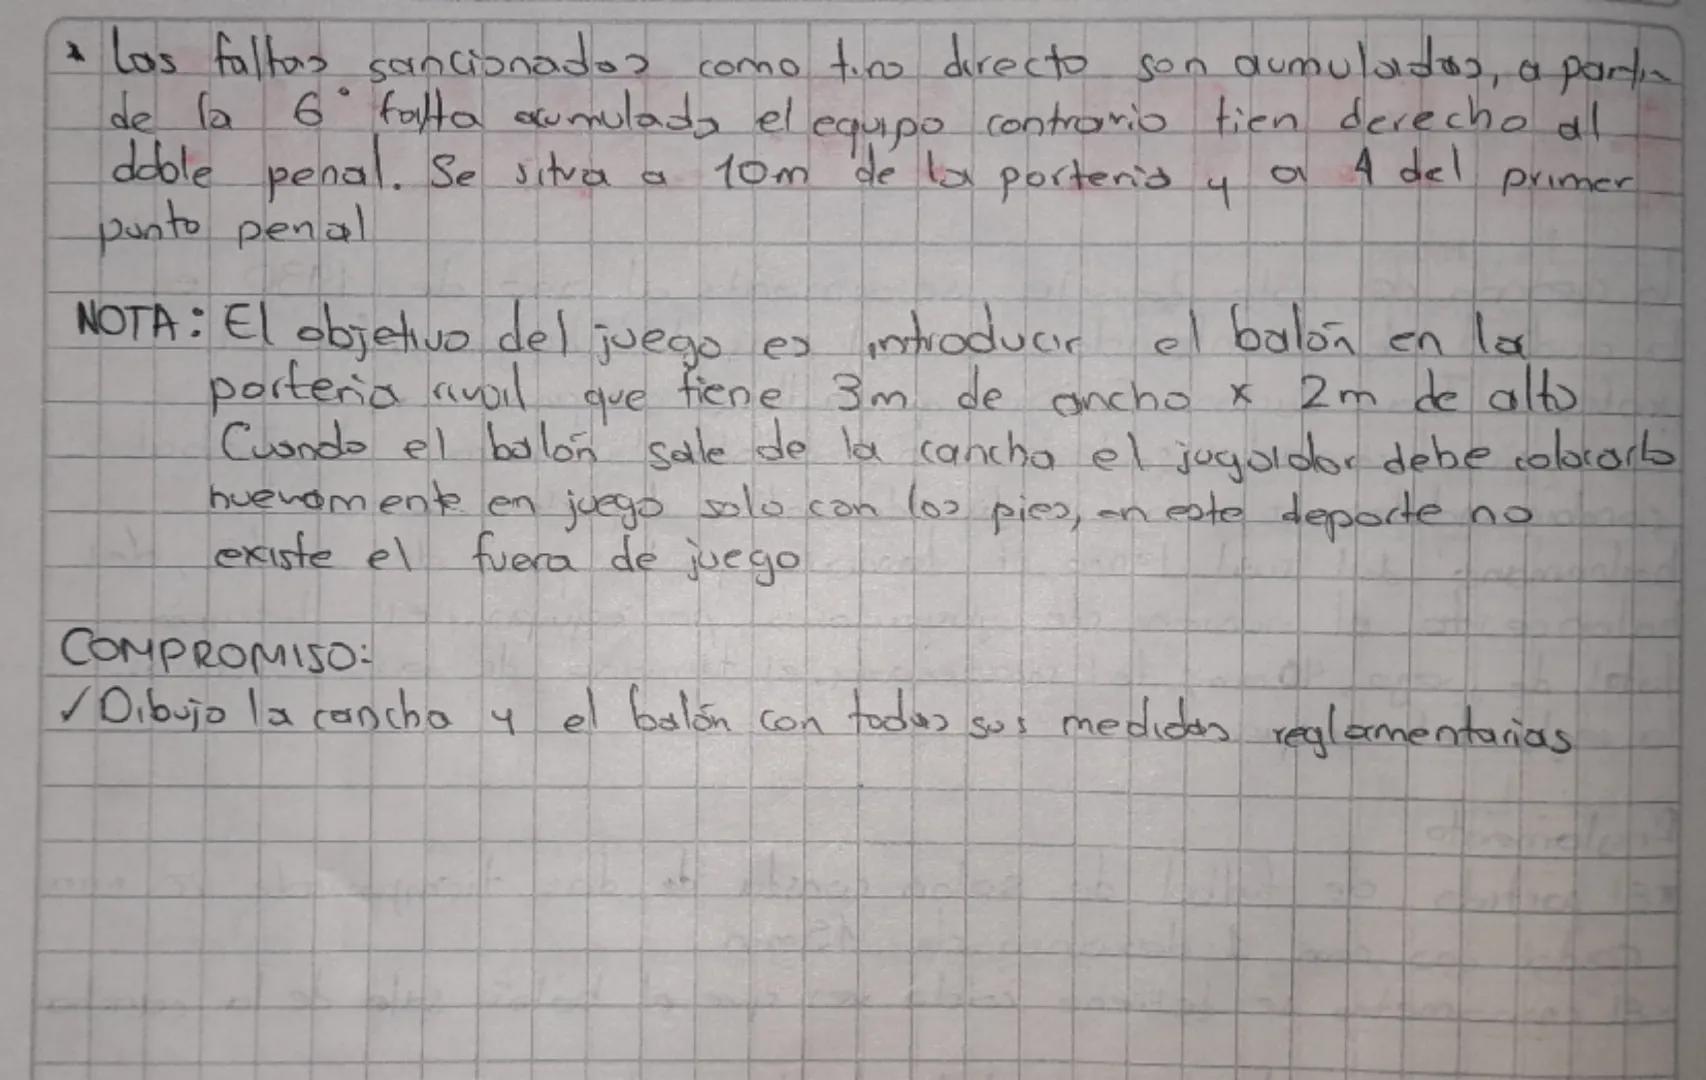 * Las faltas sancionadas como tiro directo son aumuladas, a partir
de la 6° falta acumulada el equipo contrario tien derecho al
doble penal. Se situa a 10m de la porteria y a 4 del primer
punto penal
NOTA: El objetivo del juego es introducir el balón en la
porteria rival que tiene 3m de ancho x 2m de alto
Cuando el balón sale de la cancha el jugador debe colocarlo
nuevamente en juego solo con los pies, en este deporte no
existe el fuera de juego
COMPROMISO:
✓ Dibujo la cancha y el balón con todas sus medidas reglamentarias